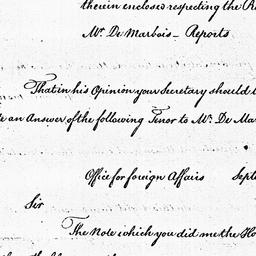 therein enclosed respecting the
Mr. De Marbois — Reports
That in his Opinion your Secretary should
an Answer of the following Tenor to Mr. De Mar
Office for foreign Affairs Sept
Sir
The Note which you did me the Ho